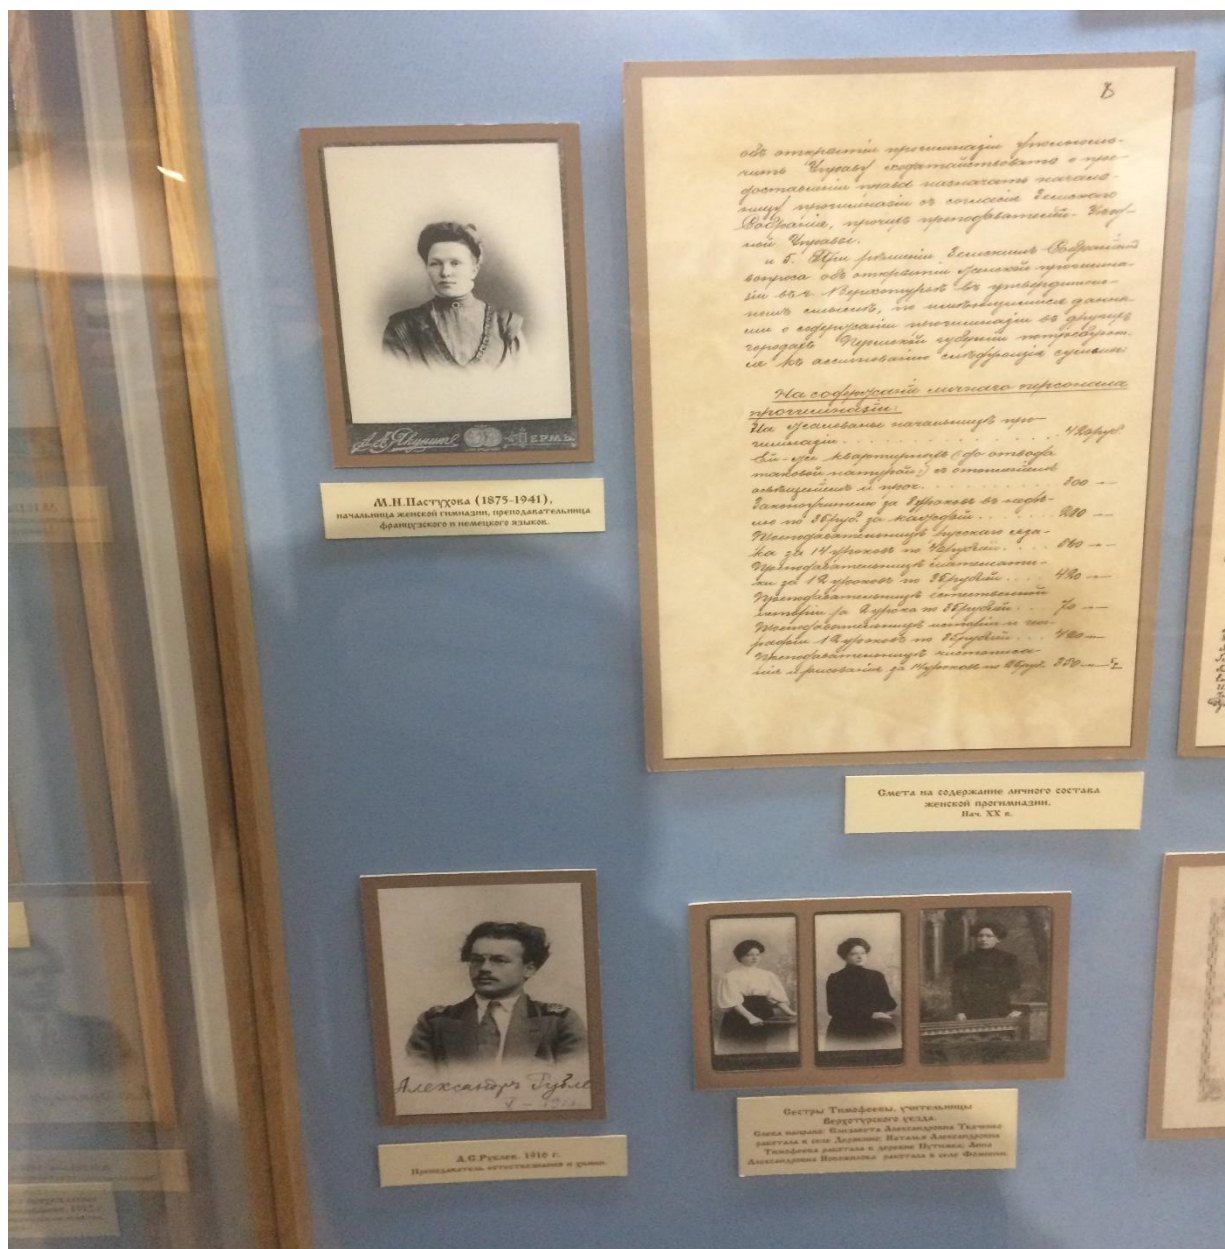 А. Е. Якунинъ ПЕРМЬ
М.Н.Пастухова (1875-1941),
начальница женской гимназии, преподавательница
французского и немецкого языков.
8
объ открытіи прогимназіи уполномо-
чить Управу ходатайствовать о пре-
доставленіи права назначать началь-
ницу прогимназіи съ согласія Земскаго
Собранія, прочихъ преподавателей
Управы.
и 5. При рѣшеніи Земскимъ Собраніемъ
вопроса объ открытіи женской прогимна-
зіи въ г. Верхотурьѣ въ утвердитель-
номъ смыслѣ, по имѣющимся данны-
ми о содержаніи прогимназіи въ другихъ
городахъ Пермской губерніи потребует-
ся къ ассигнованію слѣдующія суммы:
На содержаніе личнаго персонала
прогимназіи:
На жалованье начальницѣ про-
гимназіи . . . 420 руб
Ей-же квартирныхъ (до отвода
таковой натурой) съ отопленіемъ
освѣщеніемъ и проч. . . 300 —
Законоучителю за 8 уроковъ въ недѣ-
лю по 35 руб. за каждый . . . 280 —
Преподавательницѣ русскаго язы-
ка за 14 уроковъ по 40 рублей. . . 560 —
Преподавательницѣ математи-
ки за 12 уроковъ по 35 рублей . . . 420 —
Преподавательницѣ естественной
исторіи за 2 урока по 35 рублей . . . 70 —
Преподавательницѣ исторіи и гео-
графіи 12 уроковъ по 35 рублей . . . 420 —
Преподавательницѣ чистописа-
нія и рисованія за 14 уроковъ по 25 руб. 350 —
Смета на содержание личного состава
женской прогимназии.
Нач. XX в.
Александръ Рубле
А.С.Рублев. 1916 г.
Преподаватель естествознания и химии.
Сестры Тимофеевы, учительницы
Верхотурского уезда.
Слева направо: Елизавета Александровна Ткаченко
работала в селе Дерябино; Наталья Александровна
Тимофеева работала в деревне Путимка; Анна
Александровна работала в селе Фомино.